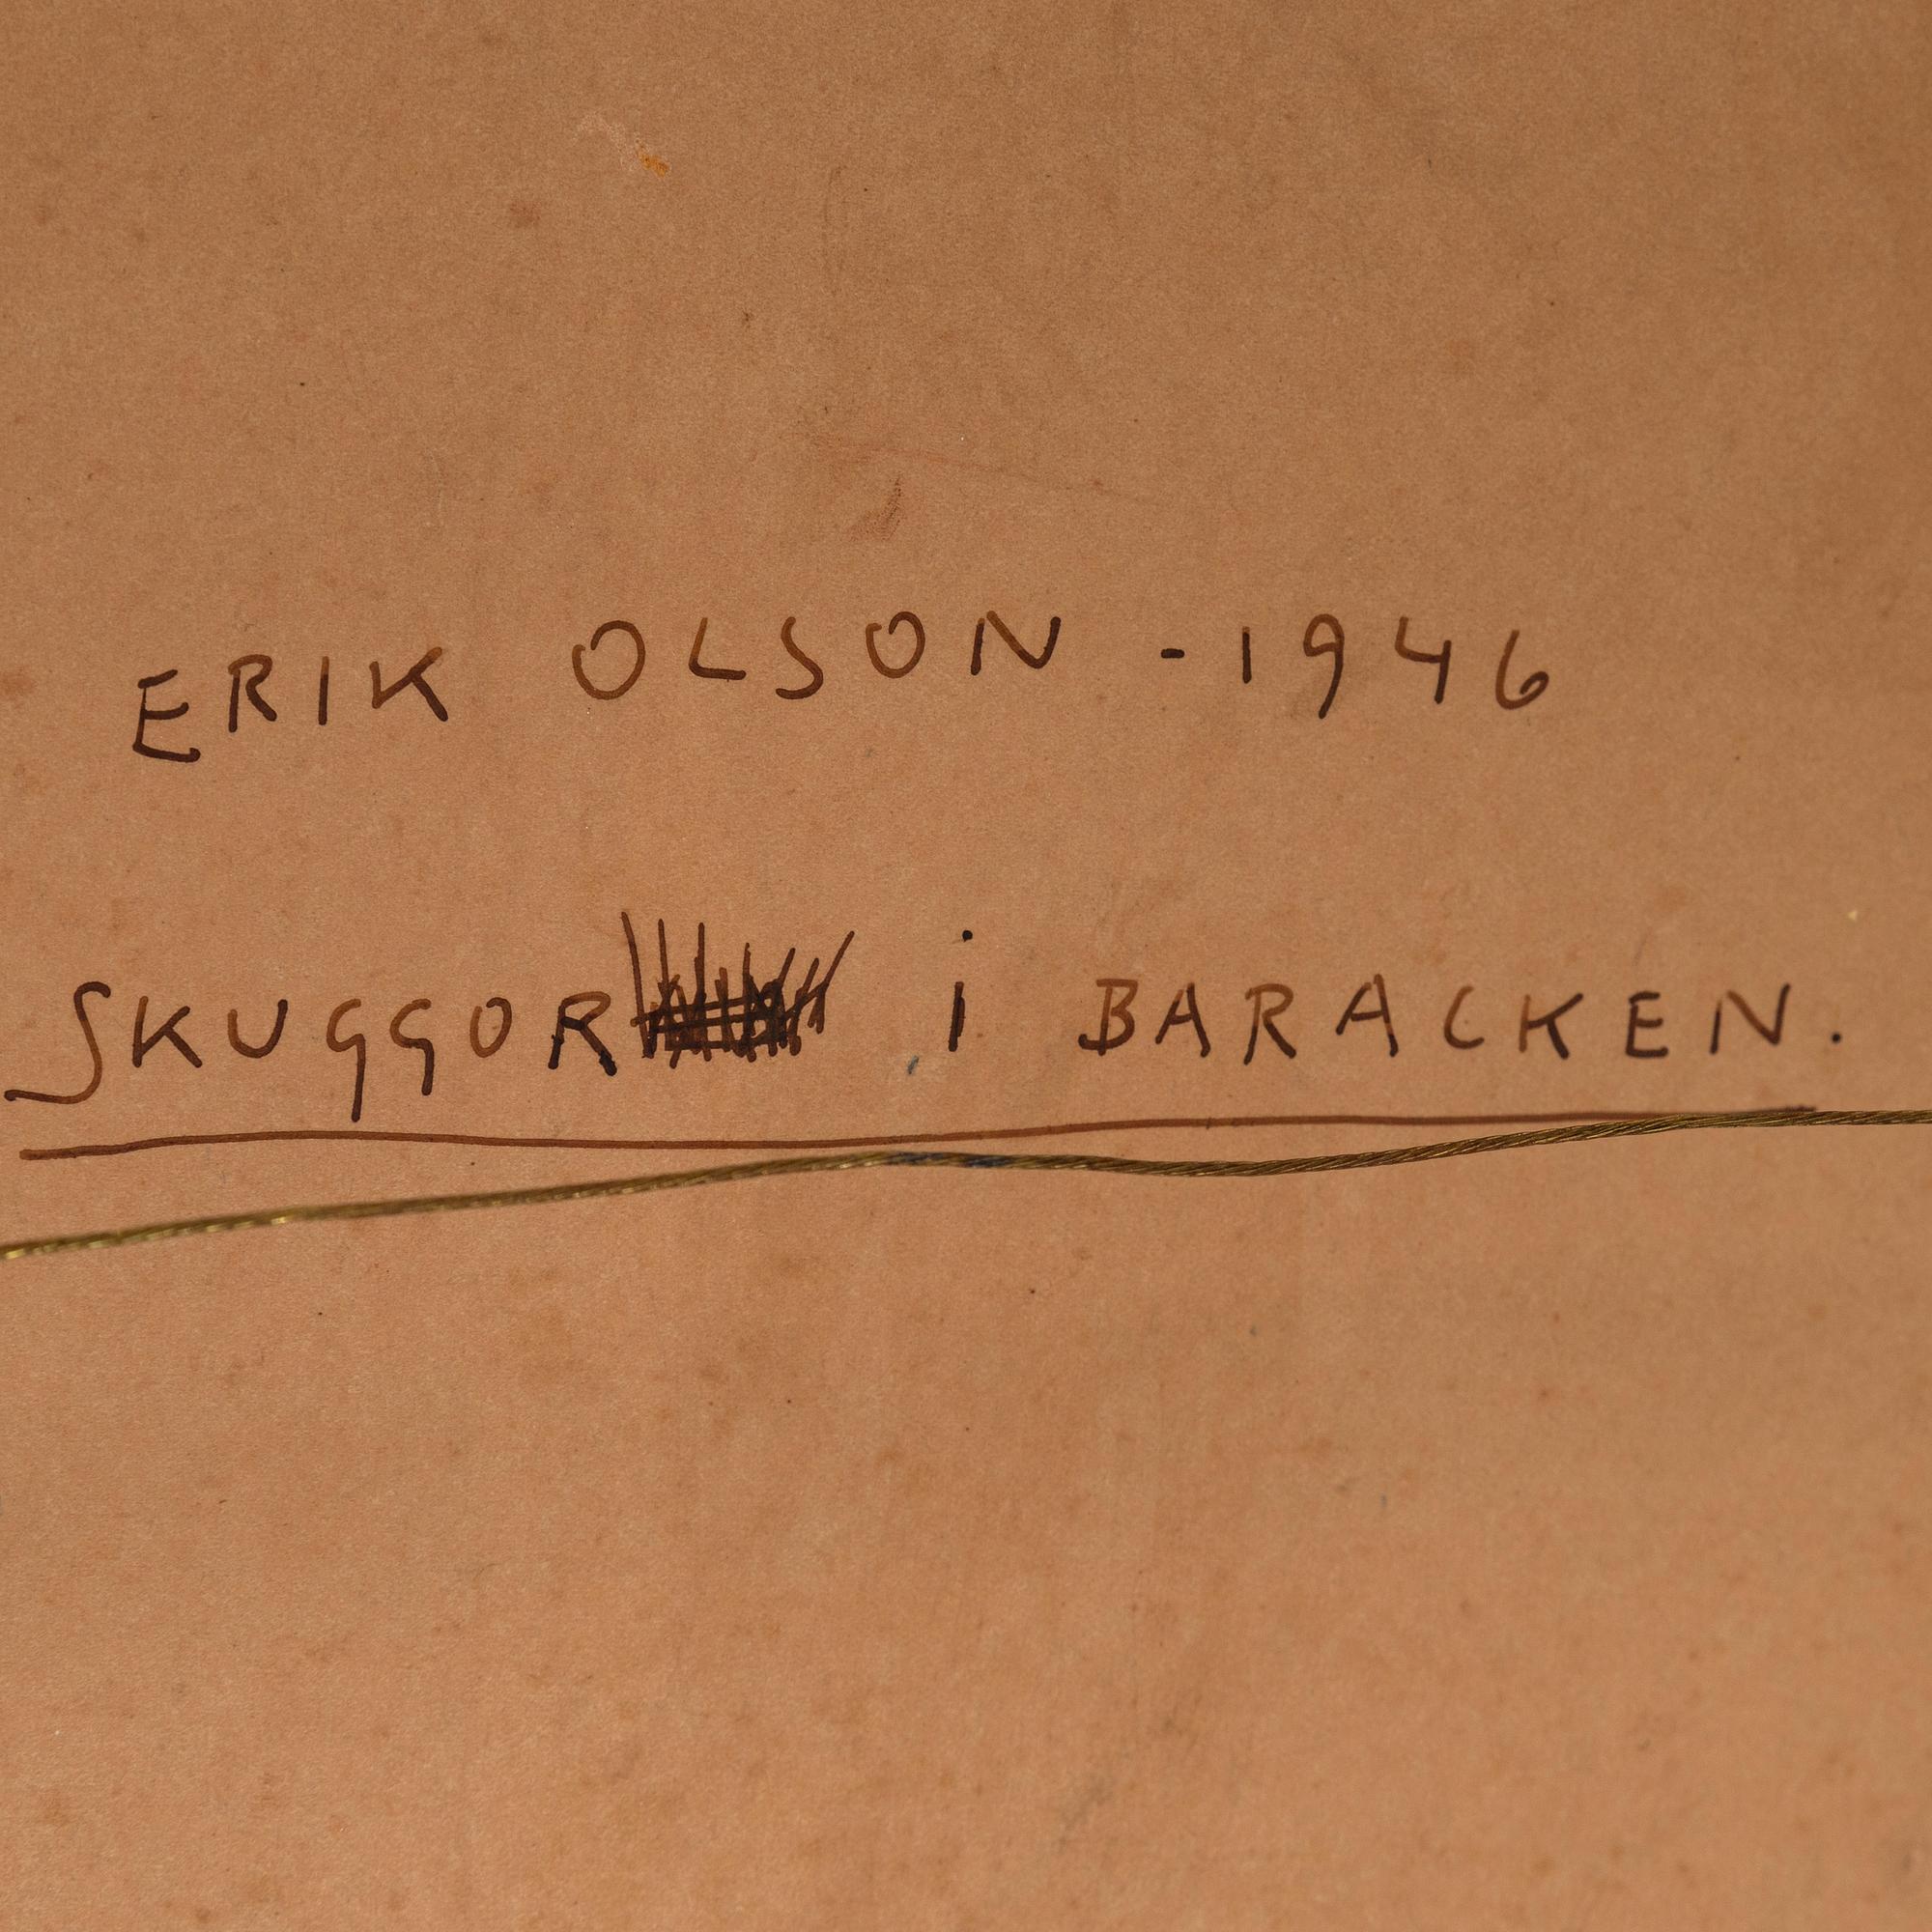 ERIK OLSON - 1946
SKUGGOR i BARACKEN.